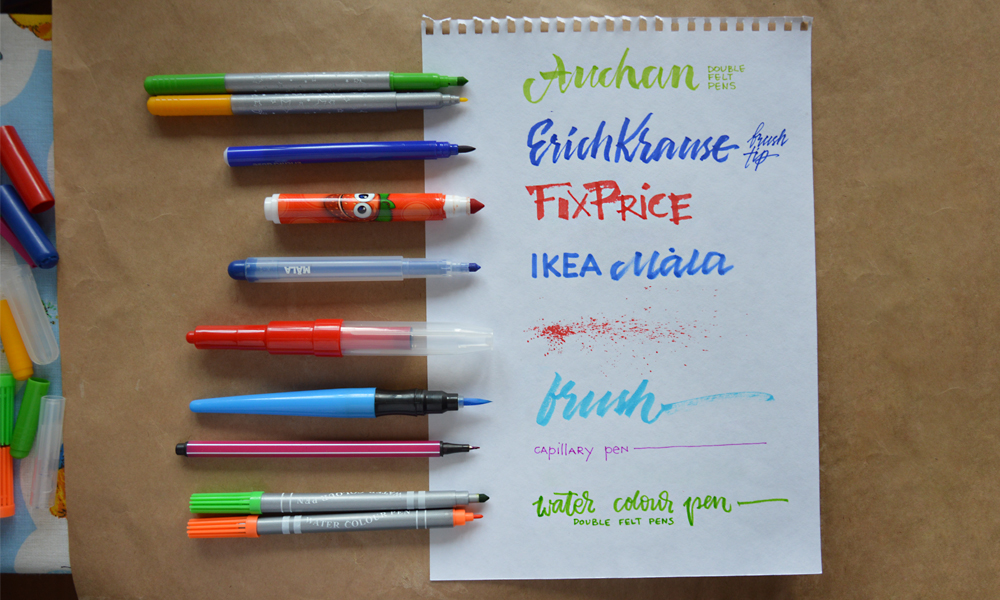 Auchan
DOUBLE
FELT
PENS
ErichKrause
brush
tip
FixPrice
IKEA Måla
MÅLA
brush
capillary pen
WATER COLOUR PEN
WATER COLOUR PEN
water colour pen
DOUBLE FELT PENS